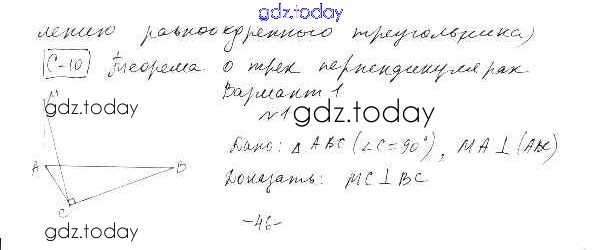 gdz.today
лению равнобедренного треугольника)
С-10 Теорема о трех перпендикулярах
M gdz.today Вариант 1
№1 gdz.today
A B Дано: △ ABC (∠C=90°), MA⊥(ABC)
C Доказать: MC⊥BC
gdz.today -46-
gdz.today